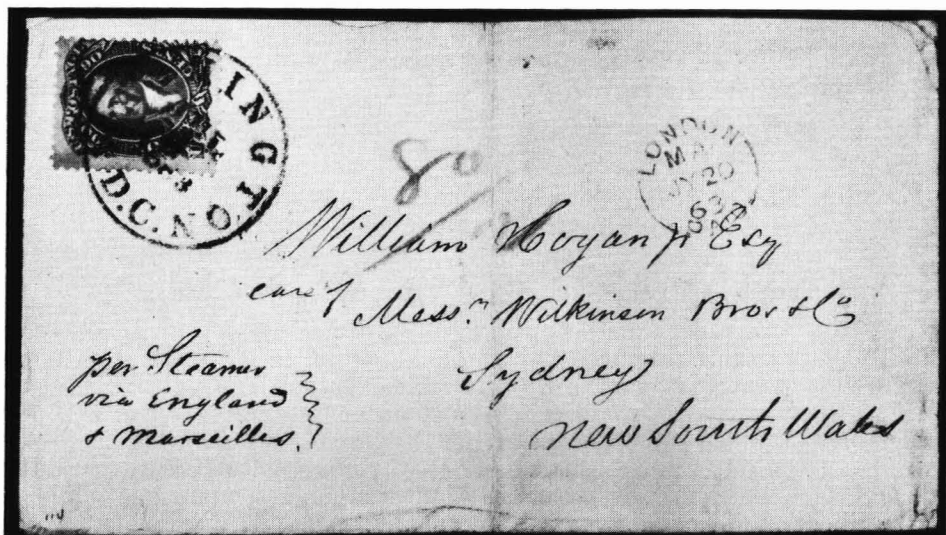 INGTON
D.C.
80
LONDON
JY 20
63
William Hogan Jr Esq
care of
Messrs. Wilkinson Bros & Co
Sydney
New South Wales
per Steamer
via England
& Marseilles.